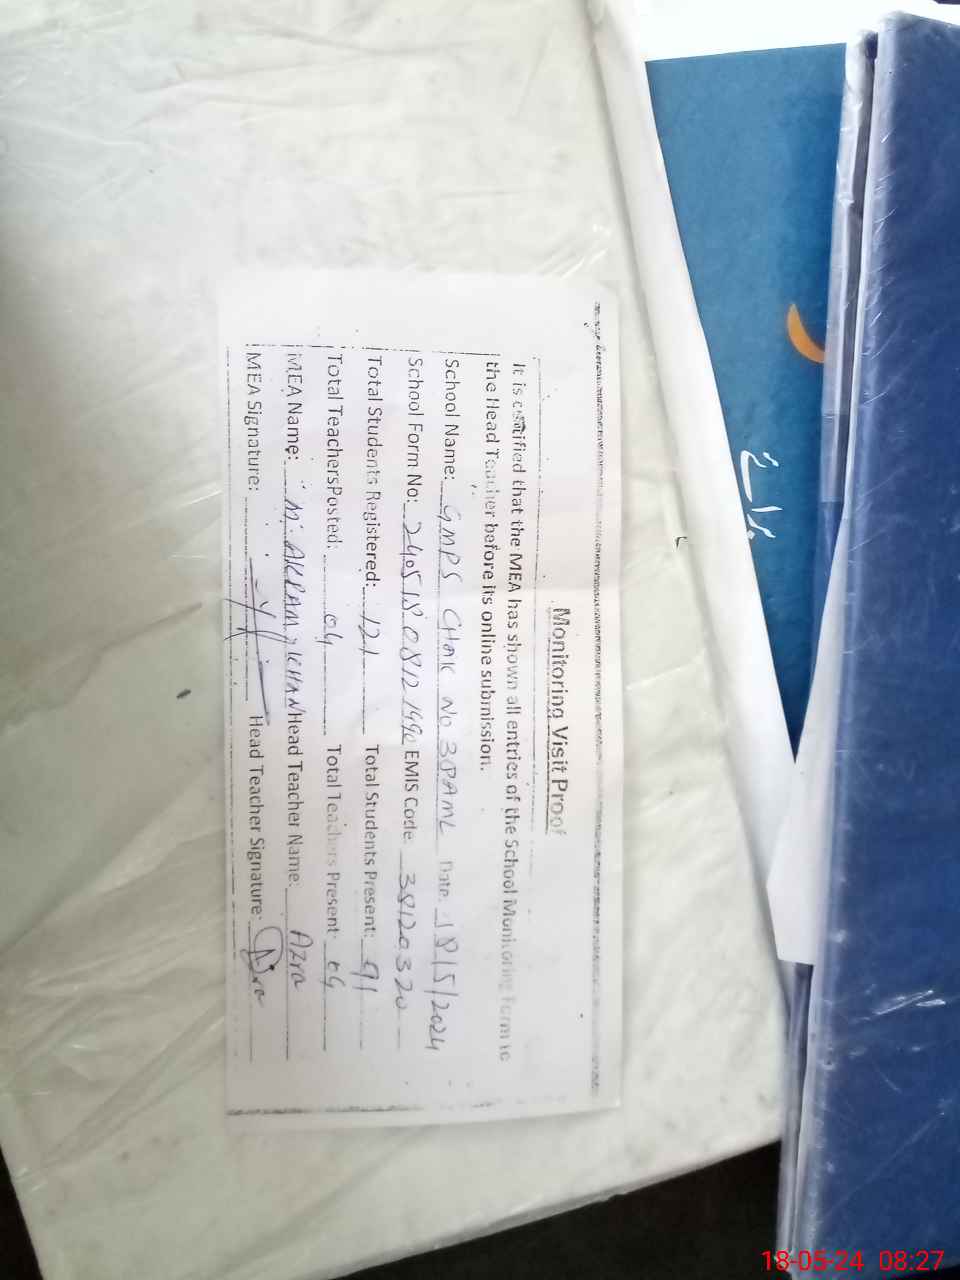 Monitoring Visit Proof
It is certified that the MEA has shown all entries of the School Monitoring Form to
the Head Teacher before its online submission.
School Name: GMPS CHAK No 38AML Date: 18/5/2024
School Form No: EMIS Code: 38120320
Total Students Registered: 121 Total Students Present: 91
Total TeachersPosted: 04 Total Teachers Present: 04
MEA Name: M. AKRAM KHAN Head Teacher Name: Azra
MEA Signature: Head Teacher Signature: Azra
18-05-24 08:27